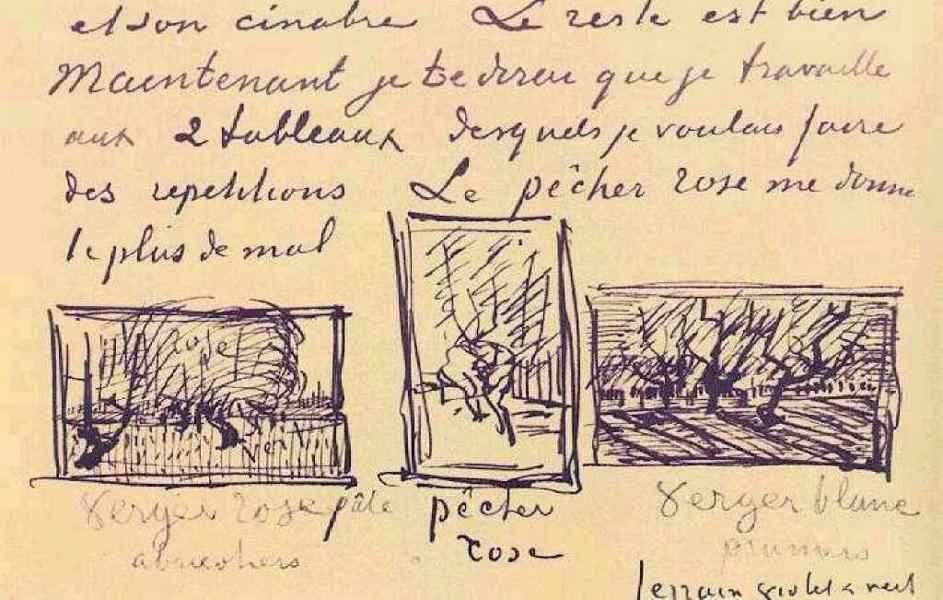 et son cinabre Le reste est bien
Maintenant je te dirai que je travaille
aux 2 tableaux desquels je voulais faire
des repetitions Le pêcher rose me donne
le plus de mal
rose
Verger rose pâle
abricotiers
pêcher
rose
Verger blanc
pruniers
terrain violet & vert